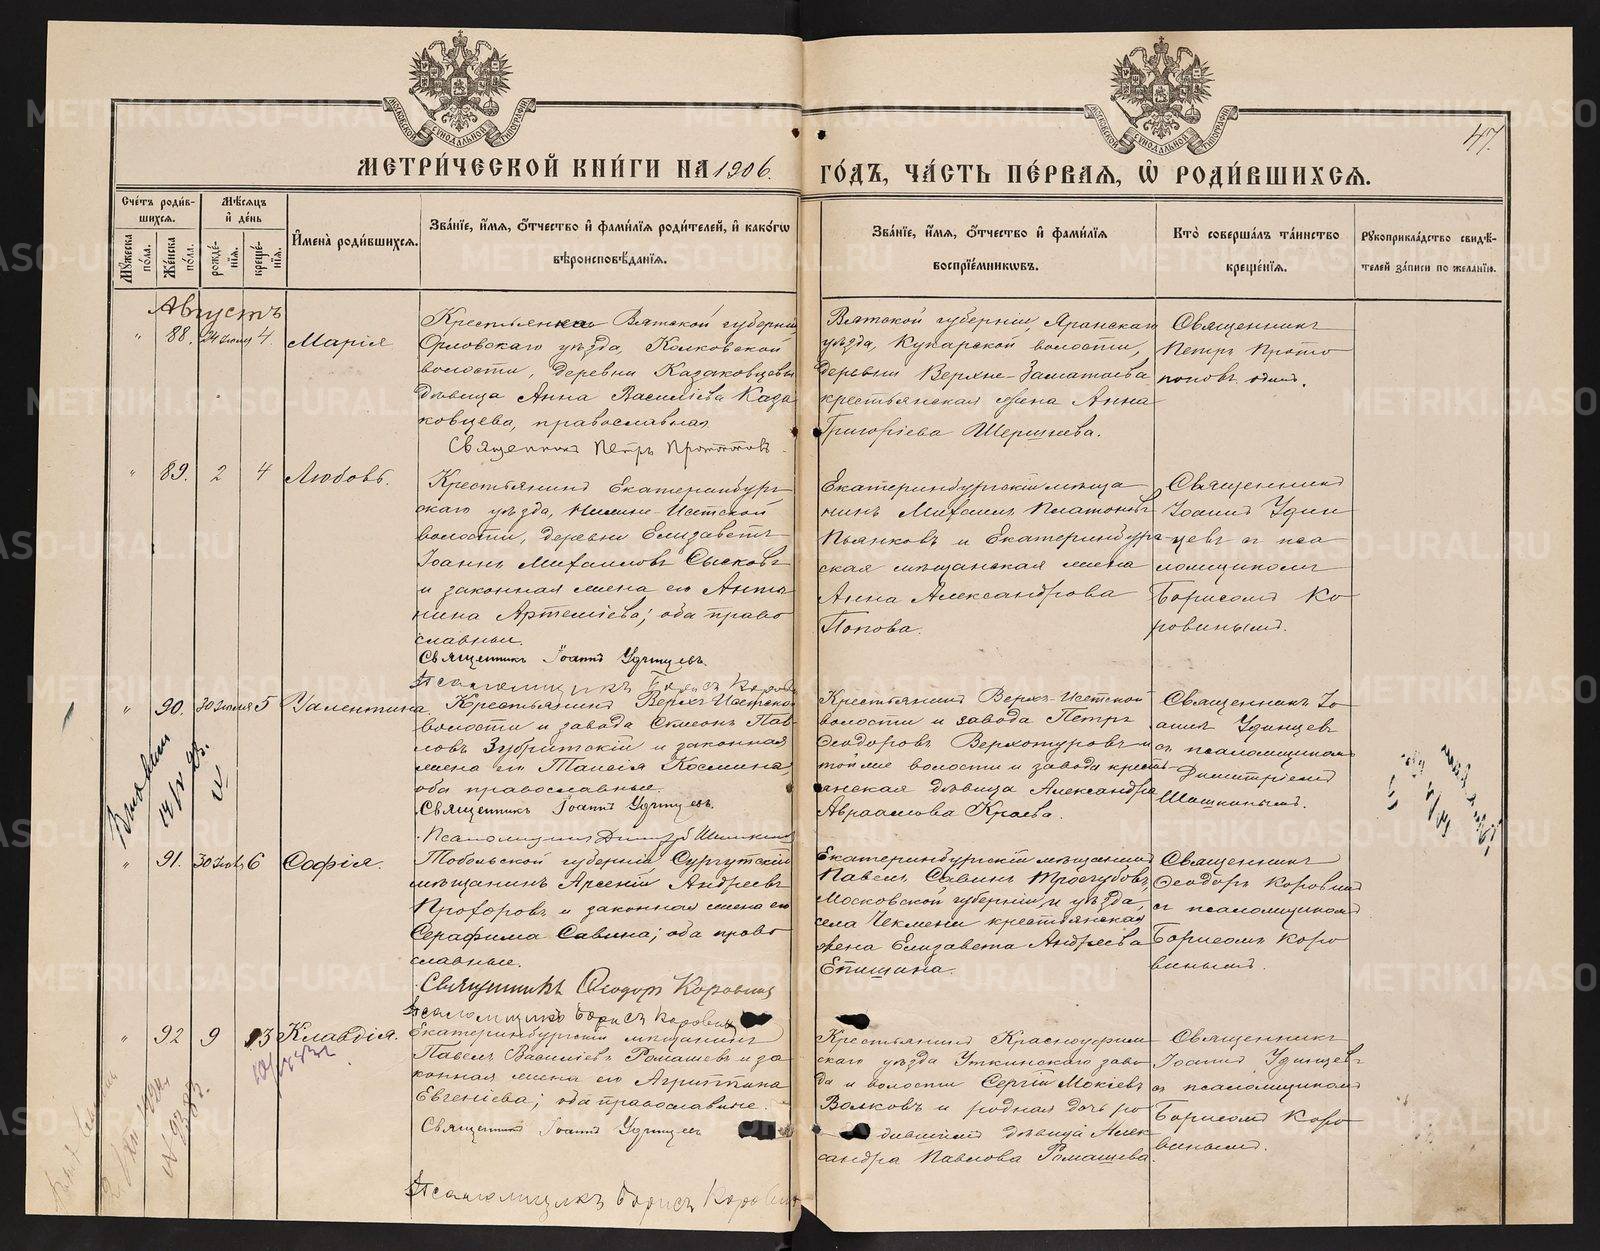 МОСКОВСКОЙ СѴНОДАЛЬНОЙ ТИПОГРАФІИ
МОСКОВСКОЙ СѴНОДАЛЬНОЙ ТИПОГРАФІИ
47.
МЕТРИ́ЧЕСКОЙ КНИ́ГИ НА 1906. ГО́ДЪ, ЧА́СТЬ ПЕ́РВАЯ, Ѡ҆ РОДИ́ВШИХСЯ.
Сче́тъ роди́в-
шихся.
Мѣ́сяцъ
и҆ де́нь
Му́жеска
по́ла.
Же́нска
по́ла.
рожде́-
нїя.
креще́-
нїя.
И҆мена̀ роди́вшихся.
Зва́нїе, и҆́мя, ѻ҆́тчество и҆ фами́лїя роди́телей, и҆ како́гѡ
вѣроисповѣ́данїя.
Зва́нїе, и҆́мя, ѻ҆́тчество и҆ фами́лїя
воспрїе́мникѡвъ.
Кто̀ соверша́лъ та́инство
креще́нїя.
Рꙋкоприкла́дство свидѣ́-
телей за́писи по жела́нїю.
Августъ
" 88. 24 Іюля 4. Марія
Крестьянка Вятской губерніи,
Орловскаго уѣзда, Колковской
волости, деревни Казаковцевы
дѣвица Анна Василіева Каза
ковцева, православная
Священникъ Петръ Протопоповъ.
Вятской губерніи, Яранскаго
уѣзда, Кукарской волости,
деревни Верхне-
крестьянская жена Анна
Григоріева
Священникъ
Петръ Прото
поповъ одинъ.
" 89. 2 4 Любовь.
Крестьянинъ Екатеринбург
скаго уѣзда, Нижне-Исетской
волости, деревни Елизаветъ
Іоаннъ Михаиловъ Сысковъ
и законная жена его Анто
нина Артеміева; оба право
славные.
Священникъ Іоаннъ Удинцевъ.
Псаломщикъ Борисъ Коровинъ
Екатеринбургскій мѣща
нинъ Михаилъ Платоновъ
Пьянковъ и Екатеринбург
ская мѣщанская жена
Анна Александрова
Попова.
Священникъ
Іоаннъ Удин
цевъ съ пса
ломщикомъ
Борисомъ Ко
ровинымъ.
" 90. 30 Іюля 5 Валентина
Крестьянинъ Верхъ-Исетской
волости и завода Симеонъ Пав-
ловъ Зубритскій и законная
жена его Таисія Космина,
оба православные.
Священникъ Іоаннъ Удинцевъ.
Псаломщикъ Димитрій Шишкинъ
Крестьянинъ Верхъ-Исетской
волости и завода Петръ
Ѳеодоровъ Верхотуровъ и
той же волости и завода кресть-
янская дѣвица Александра
Авраамова Краева.
Священникъ Іо
аннъ Удинцевъ
съ псаломщикомъ
Димитріемъ
Шишкинымъ.
" 91. 30 Іюля 6 Софія.
Тобольской губерніи Сургутскій
мѣщанинъ Арсеній Андреевъ
Прохоровъ и законная жена его
Серафима Савина; оба право
славные.
Священникъ Ѳеодоръ Коровинъ
Псаломщикъ Борисъ Коровинъ
Екатеринбургскій мѣщанинъ
Павелъ Савинъ Троегубовъ,
Московской губерніи и уѣзда,
села Чекмени крестьянская
жена Елизавета Андреева
Епишина.
Священникъ
Ѳеодоръ Коровинъ
съ псаломщикомъ
Борисомъ Коро
винымъ.
" 92 9 13 Клавдія.
Екатеринбургскій мѣщанинъ
Павелъ Василіевъ Ромашевъ и за
конная жена его Агриппина
Евгеніева; оба православные.
Священникъ Іоаннъ Удинцевъ
Псаломщикъ Борисъ Коровинъ
Крестьянинъ Красноуфим
скаго уѣзда Уткинскаго заво
да и волости Сергій Мокіевъ
Волковъ и родная дочь ро
дившихъ дѣвица Алек
сандра Павлова Ромашева.
Священникъ
Іоаннъ Удинцевъ
съ псаломщикомъ
Борисомъ Коро
винымъ.
METRIKI.GASO-URAL.RU